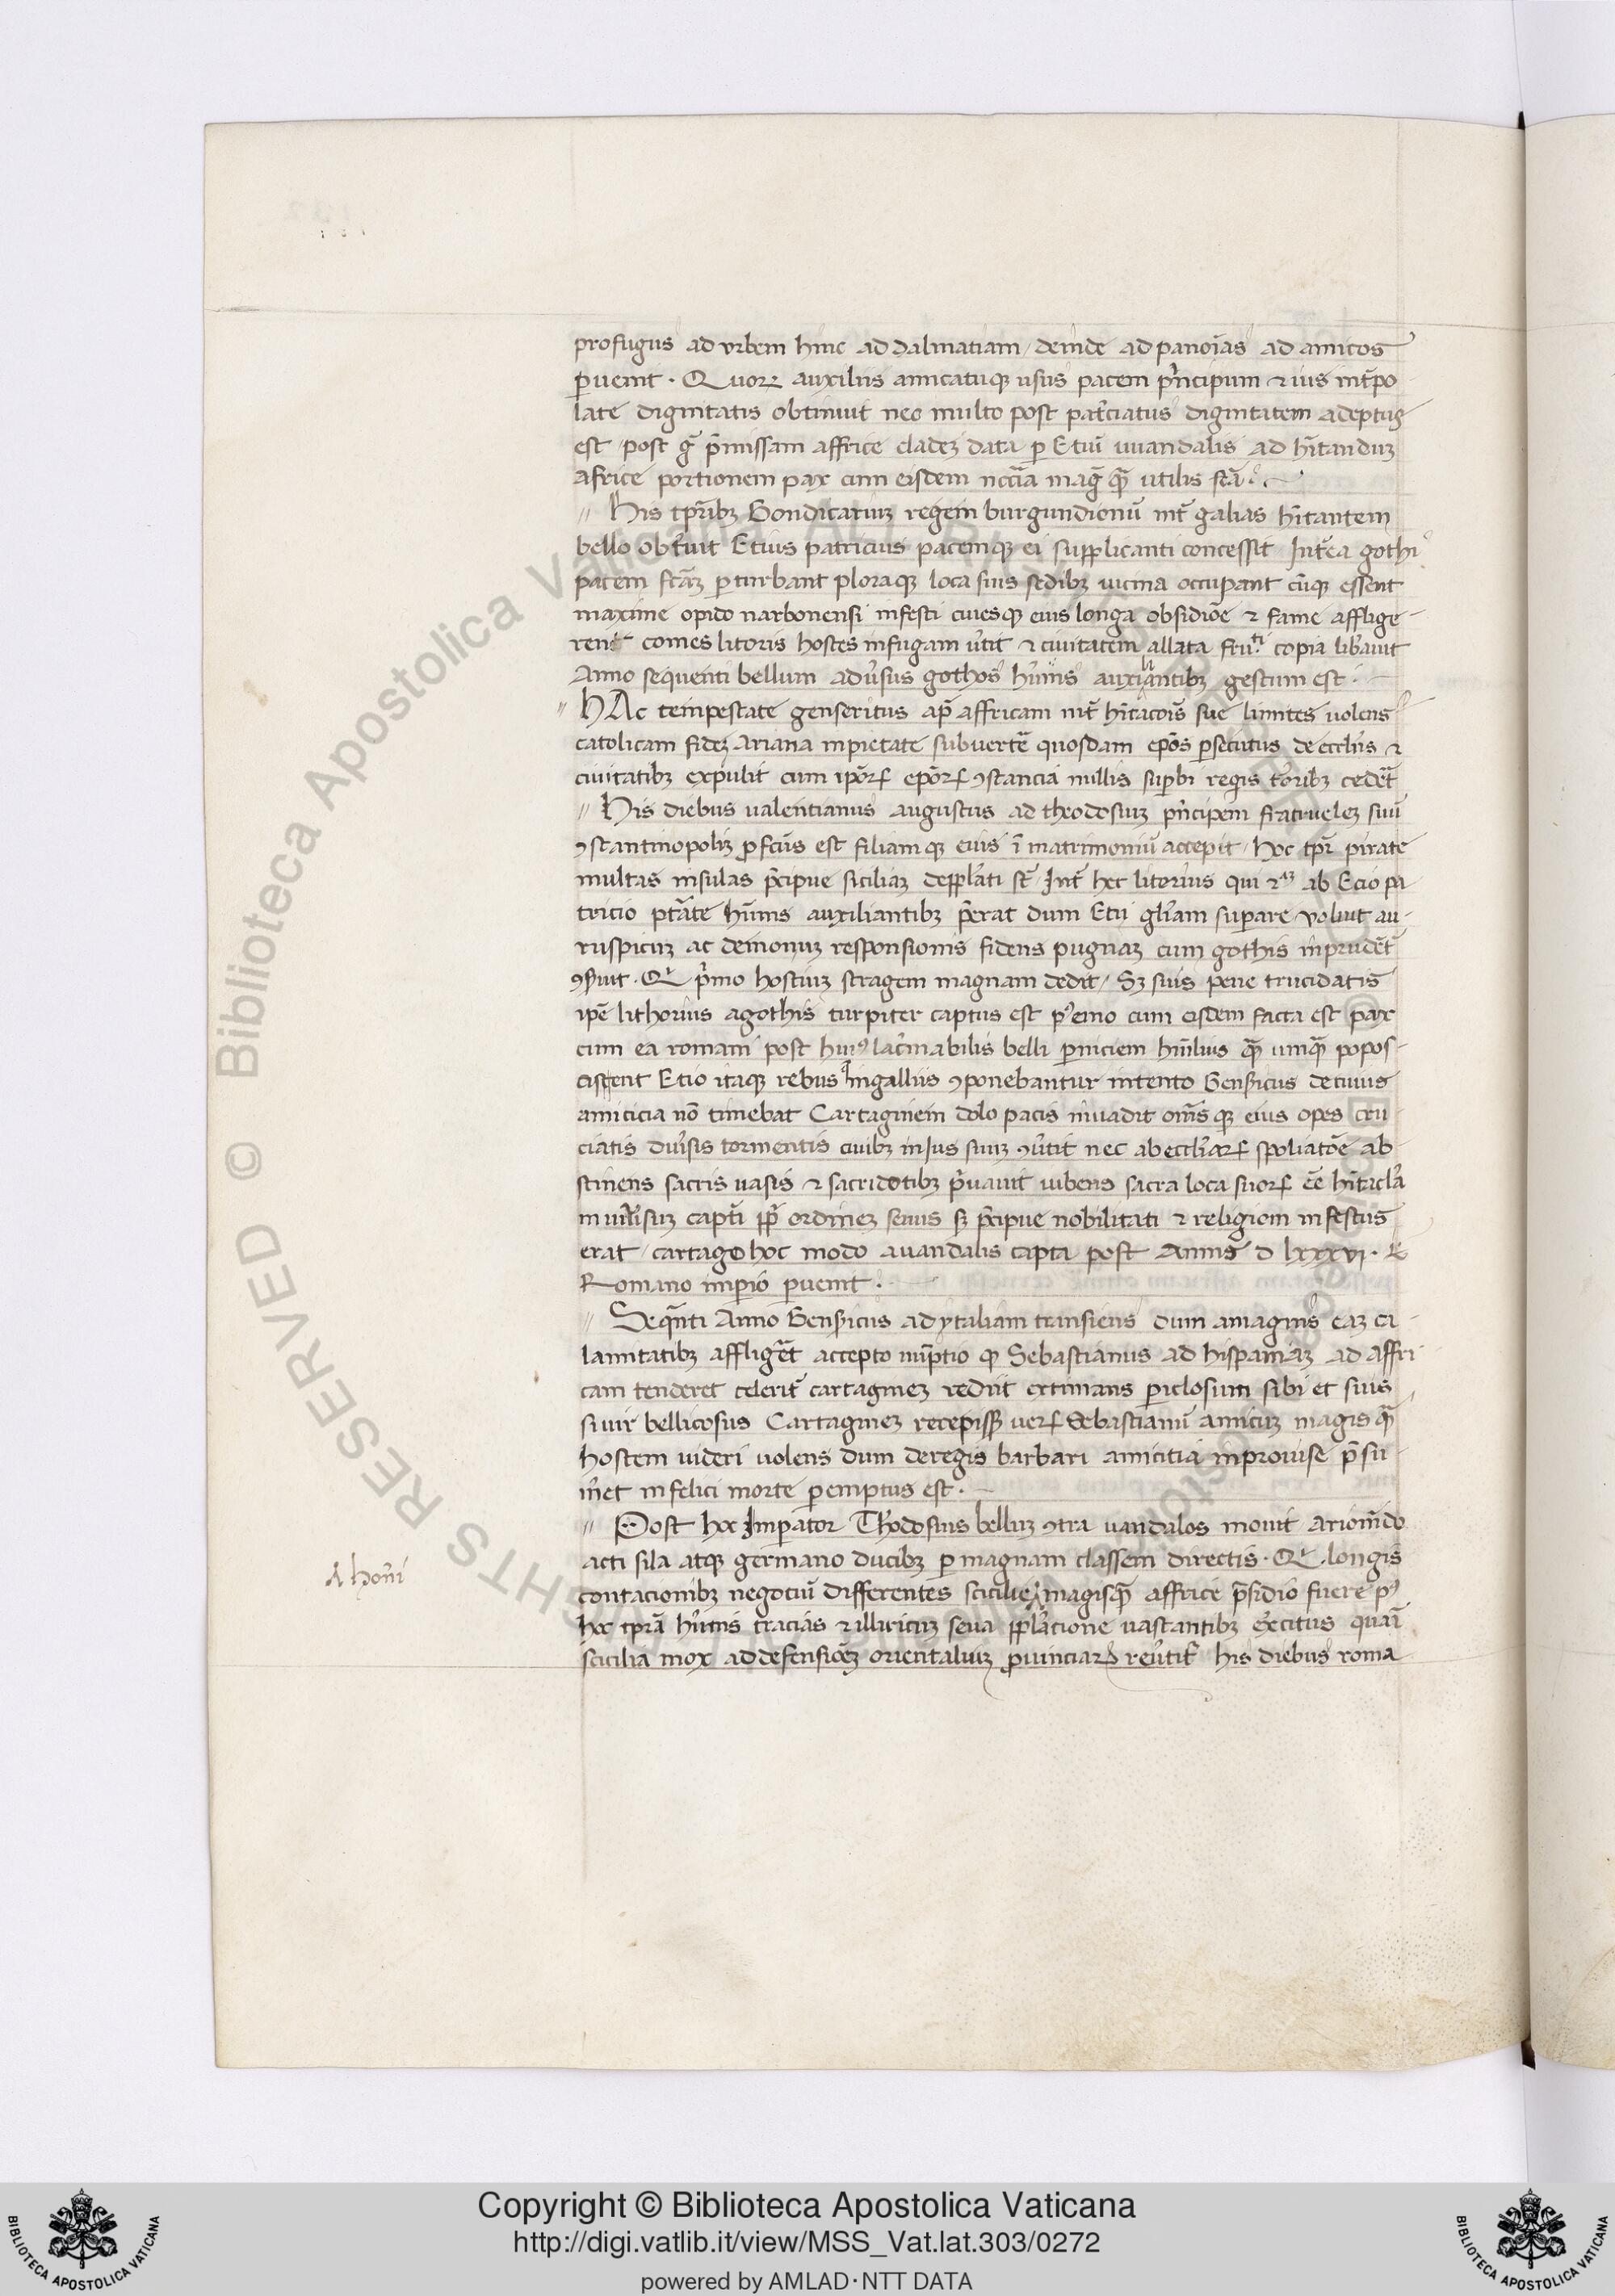 profugus ad vrbem hinc ad dalmatiam / deinde ad panoias ad amicos
puenit . Quor auxiliis amicatuqz usus pacem pncipum & ius intpo
late dignitatis obtinuit nec multo post patciatus dignitatem adeptus
est / post g pmissam affrice cladez data p Etiu vuandalis ad hitanduz
africe portionem pax cum eisdem nccia mag qz utilis fca
" His tpribz Gondicariuz regem burgundionu int galias hitantem
bello obtuit Etius patricius pacemqz ei supplicanti concessit Intea gothi
pacem fcaz pturbant ploraqz loca suis sedibz uicina occupant cuqz essent
maxime opido narbonensi infesti ciuesqz eius longa obsidioe & fame afflige
rent comes litoris hostes infugam utit & ciuitatem allata fruti copia libauit
Anno sequenti bellum adusus gothos hunis auxiliantibz gestum est .
" HAc tempestate gensericus ap affricam int hitacois sue limites uolens
catolicam fidez Ariana inpietate subuerte quosdam epos psecutus de ecclis &
ciuitatibz expulit cum ipor epor 9stancia nullis supbi regis toribz cedet
" His diebus ualentianus augustus ad theodosiuz pncipem fratruelez suu
9stantinopoliz pfcus est filiamqz eius i matrimoniu accepit / Hoc tpr pirate
multas insulas pcipue siciliaz depplati st Int hec litorius qui ab Ecio pa
tricio ptate hunis auxiliantibz perat dum Etii gliam supare voluit au
ruspicuz ac demonuz responsionis fidens pugnaz cum gothis inprudet
9seruit . Q pimo hostiuz stragem magnam dedit / Sz suis pene trucidatis
ipe lithorius agothis turpiter captus est postemo cum eisdem facta est pax
cum ea romani post hui9 lacmabilis belli pniciem humilius qz umqz popos
cissent Etio itaqz rebus q ingalliis 9ponebantur intento Gensicus de cuius
amicicia no timebat Cartaginem dolo pacis inuadit omisqz eius opes cru
ciatis duisis tormentis ciuibz in Jus suuz 9utit nec ab eccliar spoliatoe ab
stinens sacris uasis & sacridotibz puauit iubens sacra loca suor ee hitacla
in uniisuz capti ppi ordinez seuus sz pcipue nobilitati & religioni infestus
erat / cartago hoc modo auandalis capta post Annis d lxxxvi . &
Romano imperio puenit .
" Sequti Anno Gensicus ad ytaliam transiens dum amaginis eaz ca
lamitatibz affliget accepto nuptio qz Sebastianus ad hispaniaz ad affri
cam tenderet celerit cartaginez rediit extimans piclosum sibi et suis
si uir bellicosus Cartaginez recepisset uer Sebastianu amicuz magis qz
hostem uideri uolens dum deregis barbari amicitia inprouise psu
met infelici morte pemptus est .
" Post hoc Imperator Thodosius belluz 9tra vandalos mouit arionido
acti sila atqz germano ducibz p magnam classem directis . Q longis
contacionibz negotiu differentes scicilie magisqz affrice psidio fuere p9
hoc tpra hunis tracias & illiricuz seua pplacione uastantibz excitus quai
scicilia mox addefensioez orientaliuz puinciar reutit his diebus roma
A honi
Copyright © Biblioteca Apostolica Vaticana
http://digi.vatlib.it/view/MSS_Vat.lat.303/0272
powered by AMLAD·NTT DATA